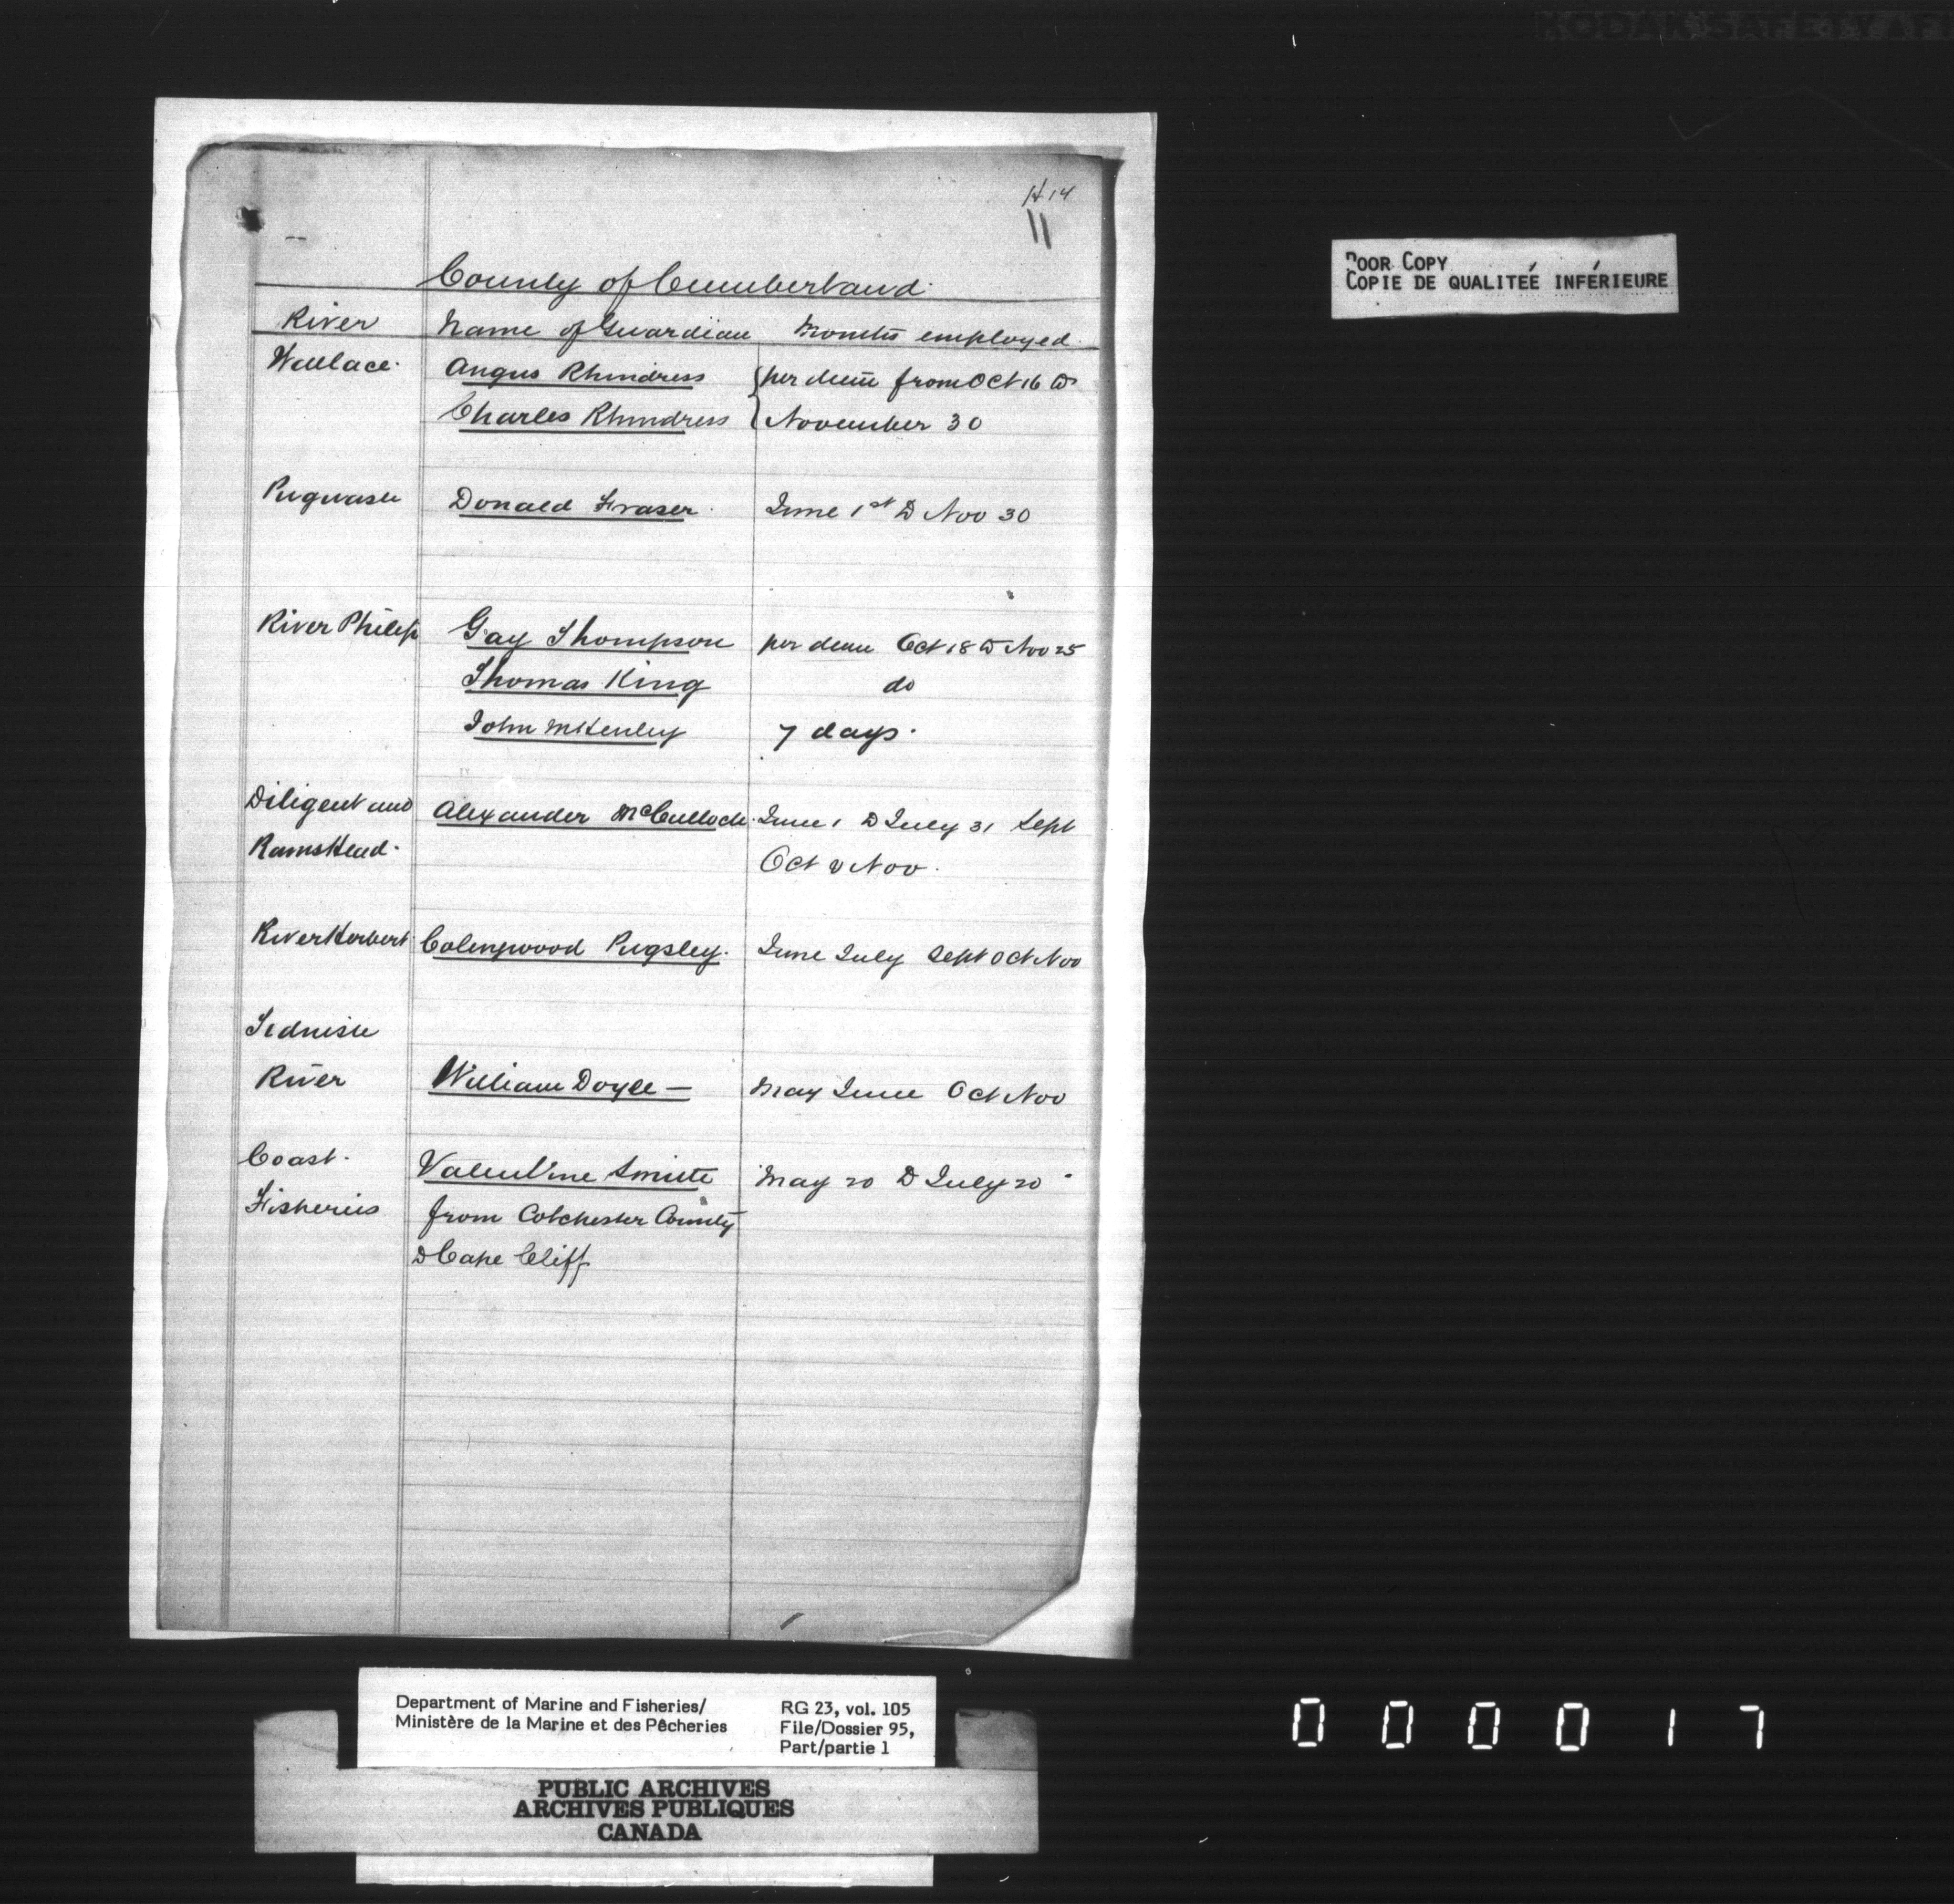 KODAK SAFETY F
14 14
11
County of Cumberland
River Name of Guardian Months employed
Wallace Angus Rhindress per diem from Oct 16 to
Charles Rhindress November 30
Pugwash Donald Fraser June 1st to Nov 30
River Philip Gay Thompson per diem Oct 18 to Nov 25
Thomas King do
John McKenley 7 days
Diligent and Alexander McCulloch June 1 to July 31 Sept
Ramshead Oct & Nov
River Herbert Colingwood Pugsley June July Sept Oct Nov
Tidnish
River William Doyle — May June Oct Nov
Coast Valentine Smith May 20 to July 20
Fisheries from Colchester County
to Cape Cliff
POOR COPY
COPIE DE QUALITEÉ INFÉRIEURE
Department of Marine and Fisheries/
Ministère de la Marine et des Pêcheries
RG 23, vol. 105
File/Dossier 95,
Part/partie 1
PUBLIC ARCHIVES
ARCHIVES PUBLIQUES
CANADA
000017